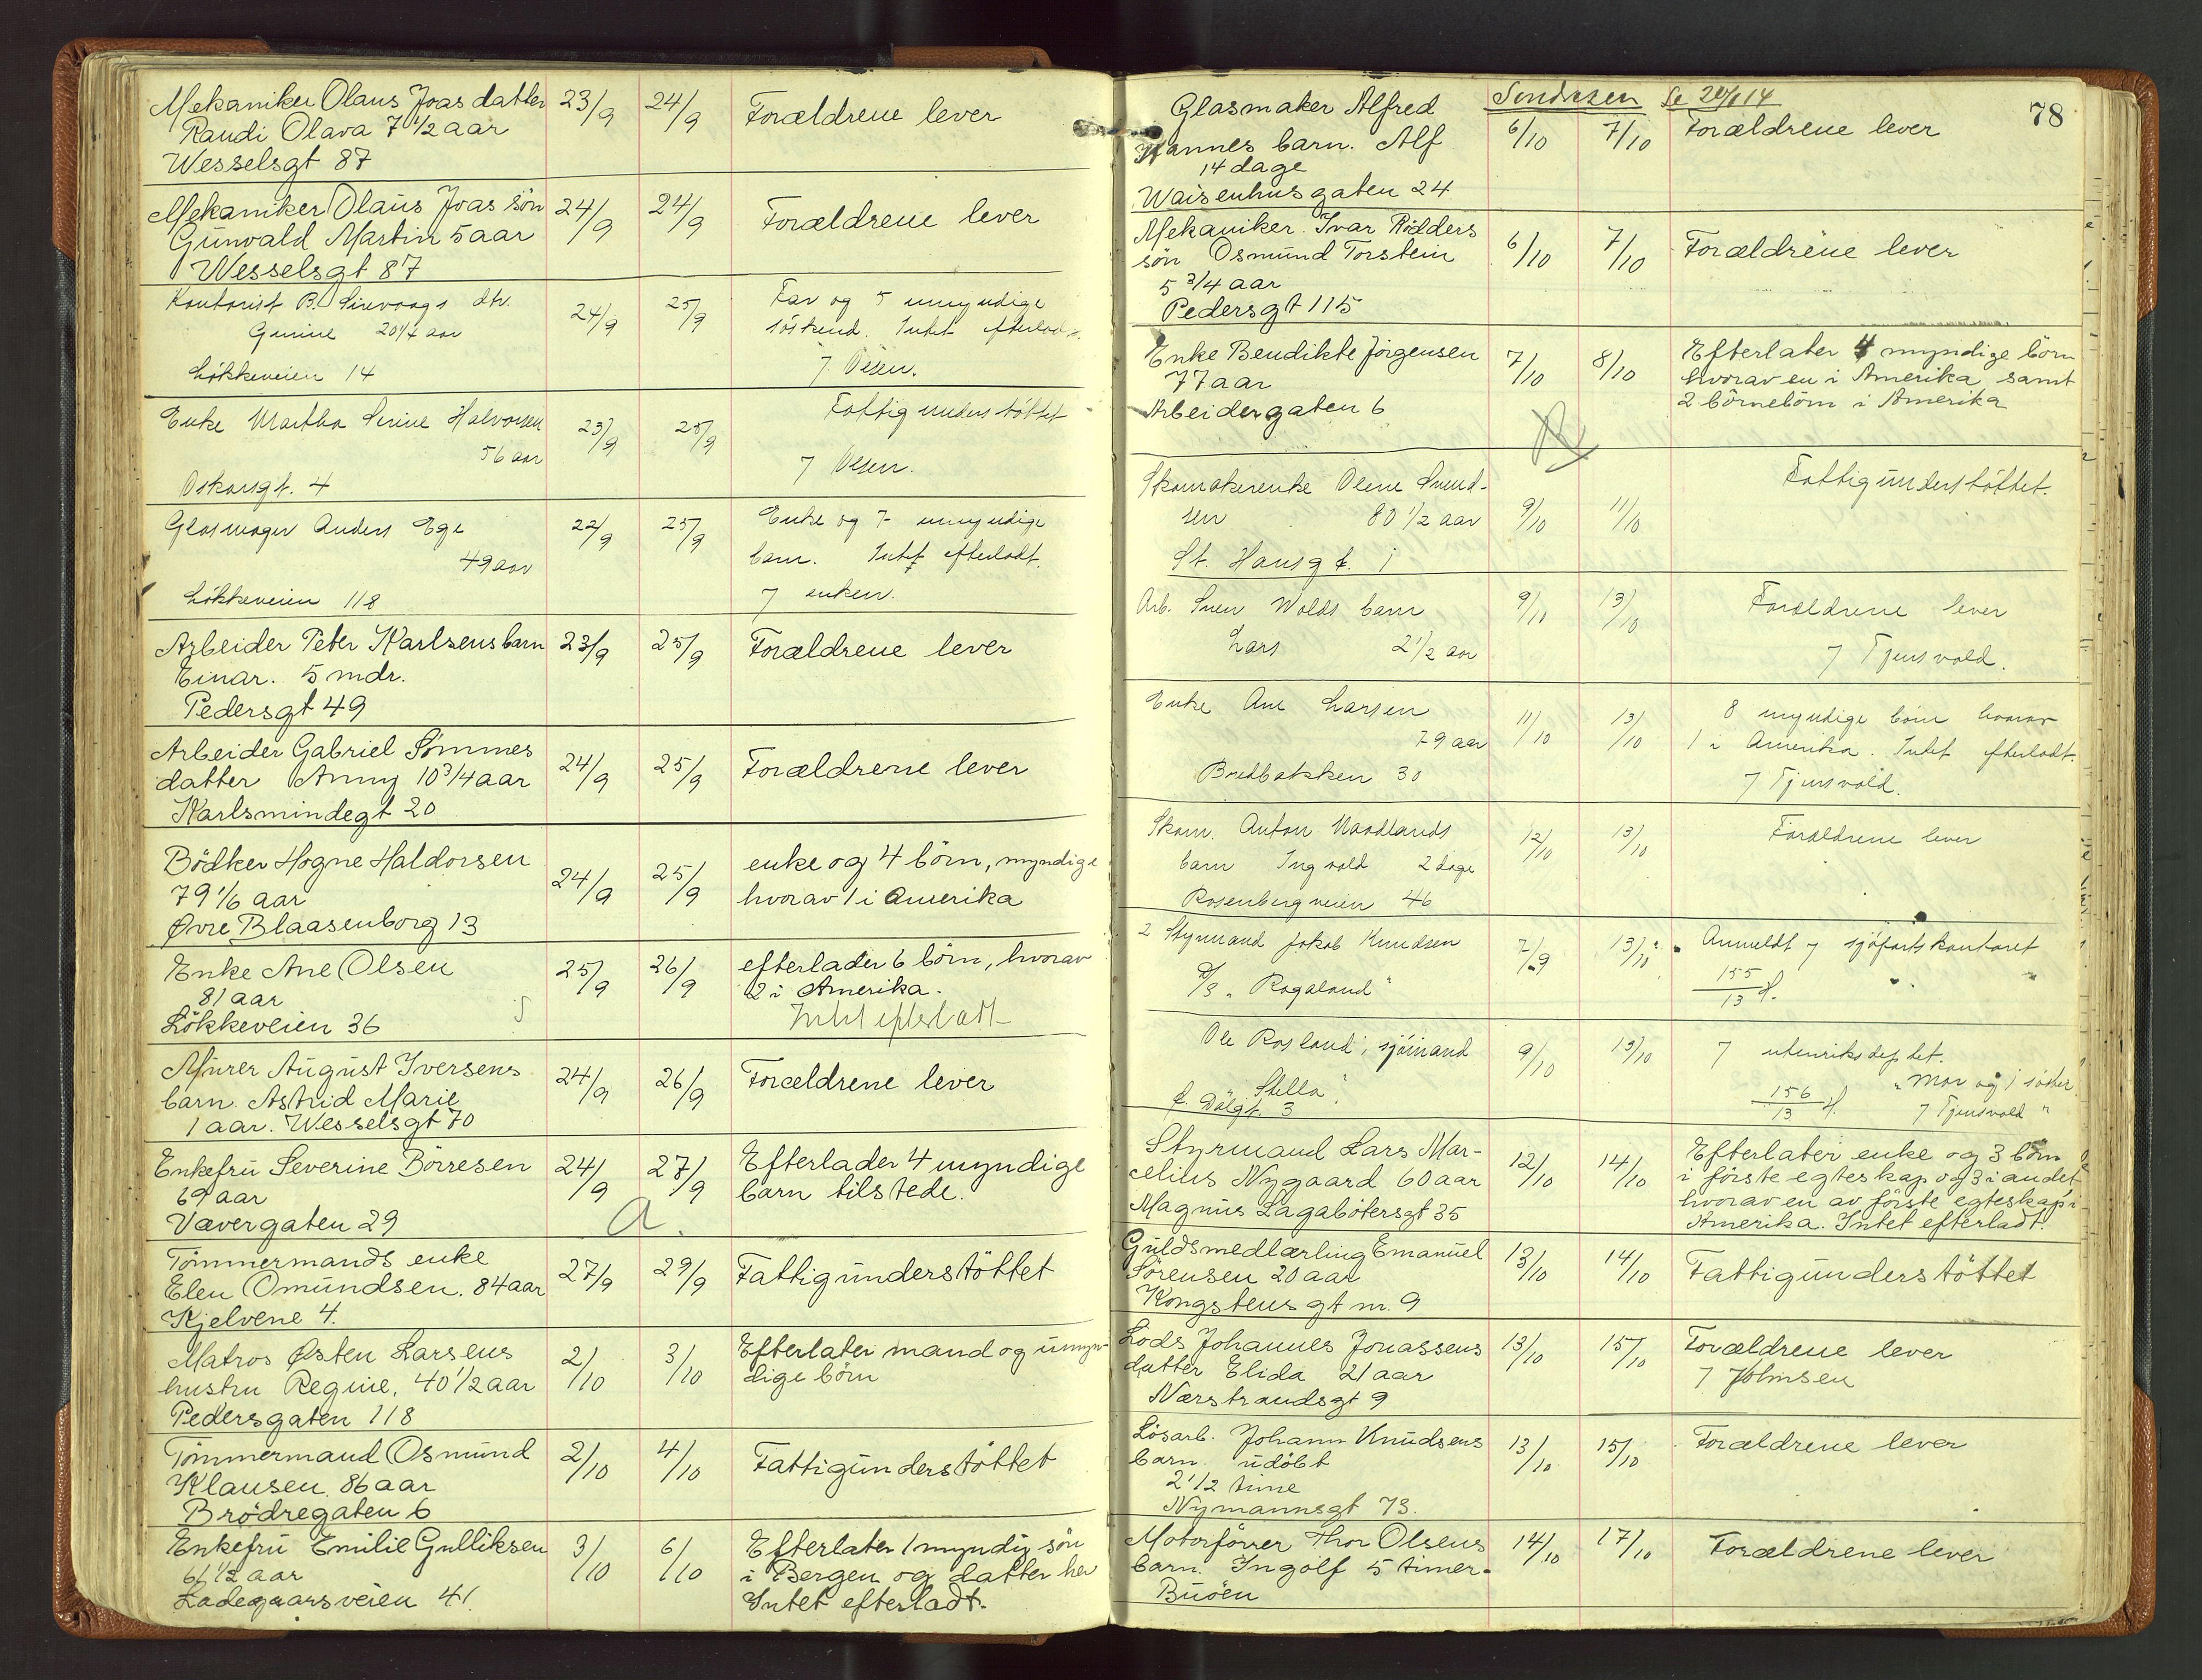 Mekaniker Olaus Joas datter 23/9 24/9 Forældrene lever
Randi Olava 7 1/2 aar
Wesselsgt 87
Mekaniker Olaus Joas sön 24/9 24/9 Forældrene lever
Gunvald Martin 5 aar
Wesselsgt 87
Kontorist B. Sirevaags dtr. 24/9 25/9 Far og 5 umyndige
Gurine 20 1/4 aar söskend. Intet efterlad
Lökkeveien 14 7 Olsen.
Enke Martha Serine Halvorsen 23/9 25/9 Fattigunderstöttet
56 aar 7 Olsen.
Oskarsgt. 4
Glasmager Anders Ege 22/9 25/9 Enke og 7 umyndige
49 aar barn. Intet efterladt.
Lökkeveien 118 7 enken.
Arbeider Peter Karlsens barn 23/9 25/9 Forældrene lever
Einar. 5 mdr.
Pedersgt 49
Arbeider Gabriel Sömmes 24/9 25/9 Forældrene lever
datter Anny 10 3/4 aar
Karlsmindegt 20
Bödker Hogne Haldorsen 24/9 25/9 enke og 4 börn, myndige
79 1/6 aar hvorav 1 i Amerika
Øvre Blaasenborg 13
Enke Ane Olsen 25/9 26/9 efterlader 6 börn, hvorav
81 aar 2 i Amerika.
Lökkeveien 36 Intet efterladt
Murer August Iversens 24/9 26/9 Forældrene lever
barn Astrid Marie
1 aar. Wesselsgt 70
Enkefru Severine Börresen 24/9 27/9 Efterlader 4 myndige
69 aar barn tilstede.
Vævergaten 29 a.
Tömmermands enke 27/9 29/9 Fattigunderstöttet
Elen Omundsen. 84 aar
Kjelvene 4.
Matros Østen Larsens 2/10 3/10 Efterlater mand og umyn-
hustru Regine, 40 1/2 aar dige börn
Pedersgaten 118
Tömmermand Osmund 2/10 4/10 Fattigunderstöttet
Klausen. 86 aar
Brödregaten 6
Enkefru Emilie Gulliksen 3/10 6/10 Efterlater 1 myndig sön
61 1/2 aar i Bergen og datter her
Ladegaarsveien 41. Intet efterladt.
78
Glasmaker Alfred
Hannes barn. Alf 6/10 7/10 Forældrene lever
14 dage
Waisenhusgaten 24
Mekaniker Ivar Rödders 6/10 7/10 Forældrene lever
sön Osmund Torstein
5 3/4 aar
Pedersgt 115
Enke Bendikte Jörgensen 7/10 8/10 Efterlater 4 myndige börn
77 aar hvorav en i Amerika samt
Arbeidergaten 6 2 börneborn i Amerika
Skomakerenke Olene Svend- 9/10 11/10 Fattigunderstöttet.
sen 80 1/2 aar
St. Hansgt. 1
Arb. Sven Wolds barn 9/10 13/10 Forældrene lever
Lars 2 1/2 aar 7 Tjensvold.
Enke Ane Larsen 11/10 13/10 8 myndige börn hvorav
79 aar 1 i Amerika. Intet efterladt.
Bredbakken 30 7 Tjensvold.
Skom. Anton Naadlands 12/10 13/10 Forældrene lever
barn Ingvald 2 dage
Rosenbergveien 46
2 Styrmand Jakob Knudsen 7/9 13/10 Anmeldt 7 sjöfartskontoret
D/S "Rogaland" 155/13
Ole Rosland, sjömand 9/10 13/10 7 utenriksdeptet.
"Stella" Mor og 1 söster
3 156/13 7 Tjensvold
Styrmand Lars Mar- 12/10 14/10 Efterlater enke og 3 börn
celius Nygaard 60 aar i förste egteskap og 3 i andet
Magnus Lagabötersgt 35 hvorav en av förste egteskap i
Amerika. Intet efterladt.
Guldsmedlærling Emanuel 13/10 14/10 Fattigunderstöttet
Sörensen 20 aar
Kongstensgt nr. 9
Lods Johannes Jonassens 13/10 15/10 Forældrene lever
datter Elida 21 aar 7 Johnsen
Nærstrandsgt 9
Lösarb. Johann Knudsens 13/10 15/10 Forældrene lever
barn. udöbt
2 1/2 time
Nymannsgt 73.
Motorförrer Thor Olsens 14/10 17/10 Forældrene lever
barn. Ingolf 5 timer.
Buöen